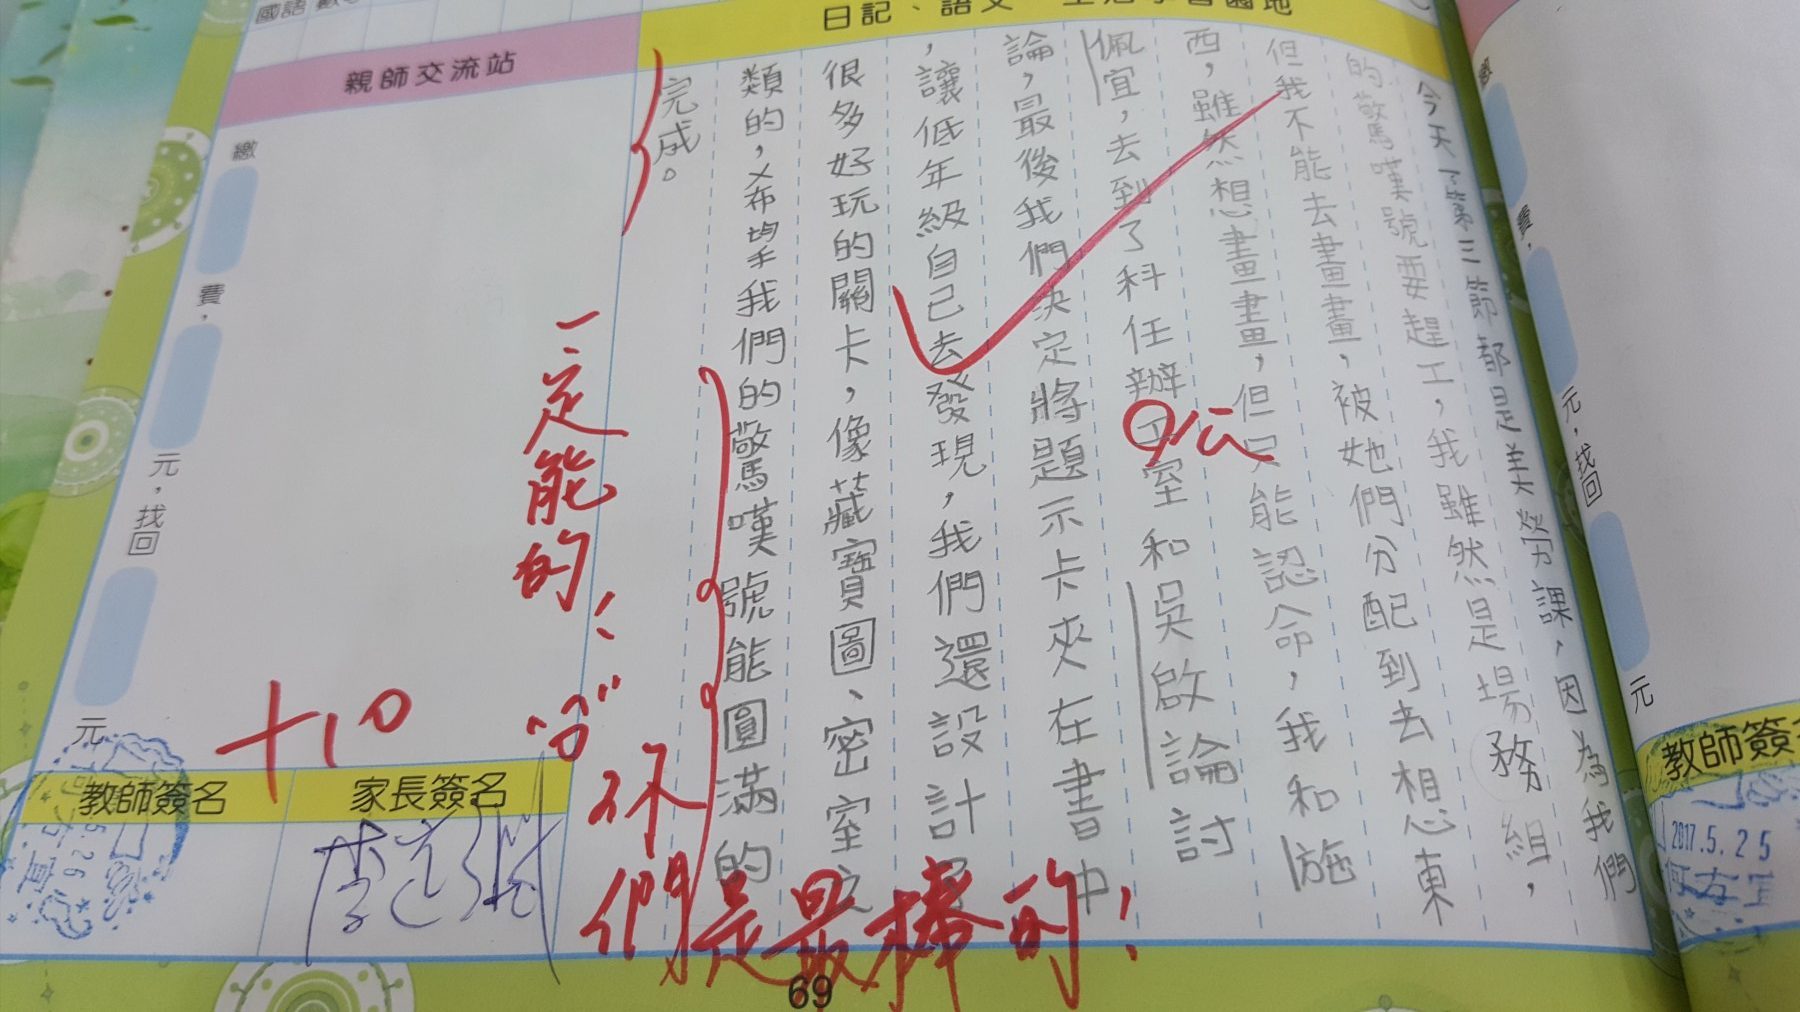 日記、語文
親師交流站
今天第三節都是美勞課，因為我們
的驚嘆號要趕工，我雖然是場務組，
但我不能去畫畫，被她們分配到去想東
西，雖然想畫畫，但只能認命，我和施
佩宜，去到了科任辦工室和吳啟論討
公
論，最後我們決定將題示卡夾在書中
，讓低年級自己去發現，我們還設計
很多好玩的關卡，像藏寶圖、密室之
類的，希望我們的驚嘆號能圓滿的
完成。
一定能的！
你們是最棒的！
+10
繳
費，
元，找回
元
教師簽名
家長簽名
69
元，找回
元
教師簽名
2017.5.25